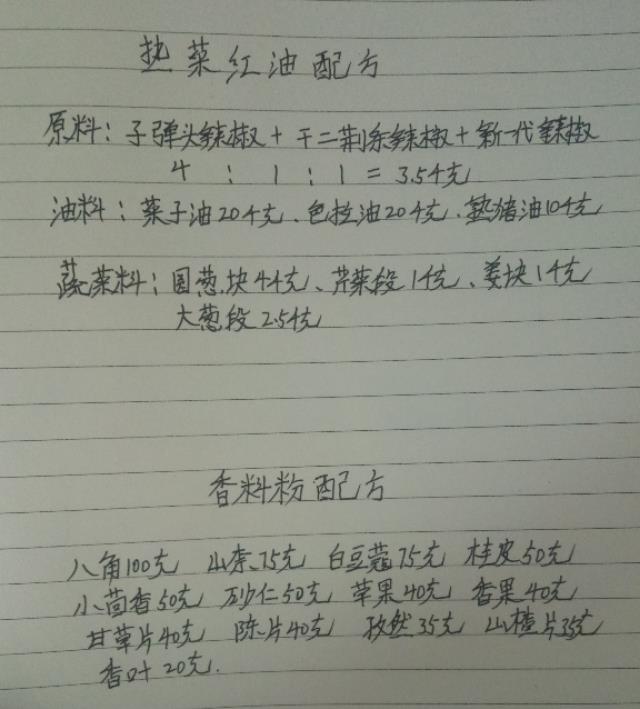 热菜红油配方
原料：子弹头辣椒+干二荆条辣椒+新一代辣椒
4 : 1 : 1 = 3.5千克
油料：菜子油20千克、色拉油20千克、熟猪油10千克
蔬菜料：圆葱块4千克、芹菜段1千克、姜块1千克
大葱段2.5千克
香料粉配方
八角100克 山柰75克 白豆蔻75克 桂皮50克
小茴香50克 砂仁50克 草果40克 香果40克
甘草片40克 陈片40克 孜然35克 山楂片35克
香叶20克.